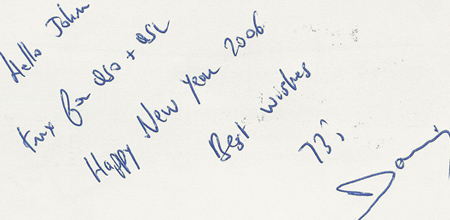 Hello John
tnx for QSO + QSL
Happy New Year 2006
Best wishes
73,